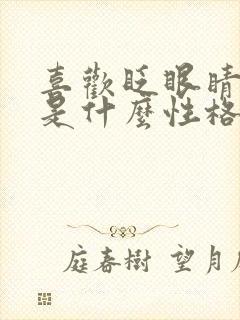 喜歡眨眼睛
是什麼性格
庭春樹 望月